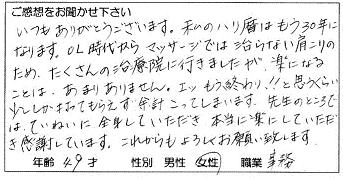 ご感想をお聞かせ下さい
いつもありがとうございます。私のハリ暦はもう30年に
なります。OL時代からマッサージでは治らない肩こりの
ため、たくさんの治療院に行きましたが、楽になる
ことは、あまりありません。エッもう終わり!!と思うくらい
少ししかおしてもらえず余計こってしまいます。先生のところで
は、ていねいに全身していただき本当に楽にしていただ
き感謝しています。これからもよろしくお願い致します。
年齢 49才 性別 男性 女性 職業 事務